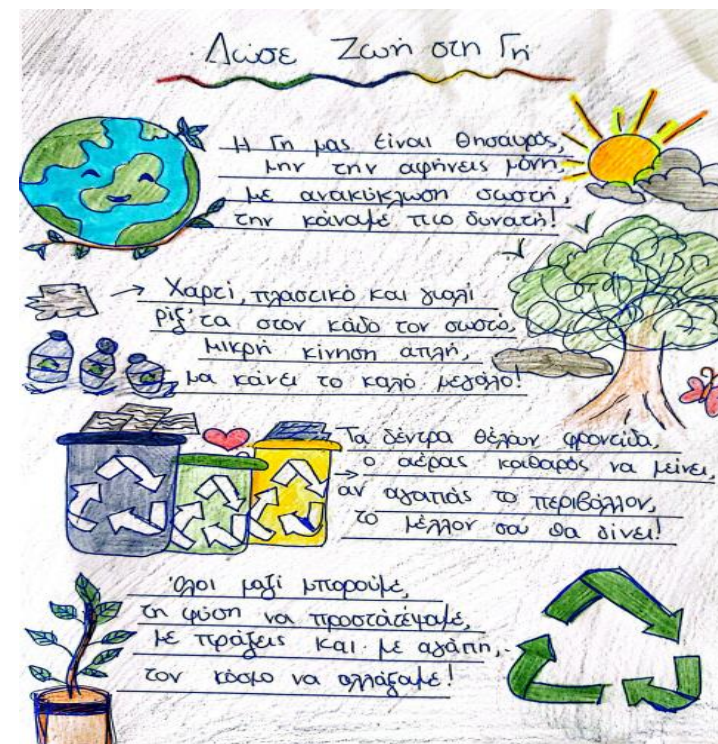 Δώσε Ζωή στη Γή
Η Γη μας είναι θησαυρός,
μην την αφήνεις μόνη,
με ανακύκλωση σωστή,
την κάνουμε πιο δυνατή!
Χαρτί, πλαστικό και γυαλί
ρίξ' τα στον κάδο τον σωστό,
μικρή κίνηση απλή,
μα κάνει το καλό μεγάλο!
Τα δέντρα θέλουν φροντίδα,
ο αέρας καθαρός να μείνει,
αν αγαπάς το περιβάλλον,
το μέλλον σου θα δίνει!
Όλοι μαζί μπορούμε,
τη φύση να προστατέψουμε,
με πράξεις και με αγάπη,
τον κόσμο να αλλάξουμε!